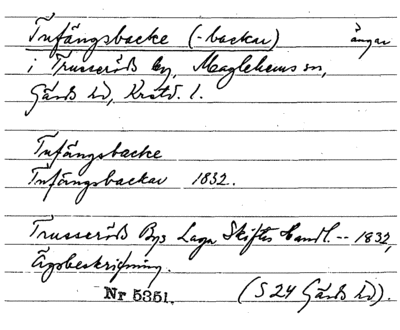 Tufängsbacke (-backar) ängar
i Trusseröds by, Maglehems sn,
Gärds hd, Krstd. l.
Tufängsbacke
Tufängsbackar 1832.
Trusseröds Bys Laga Skiftes Handl. -- 1832,
Ägobeskrifning.
Nr 5351. (S 24 Gärds hd).